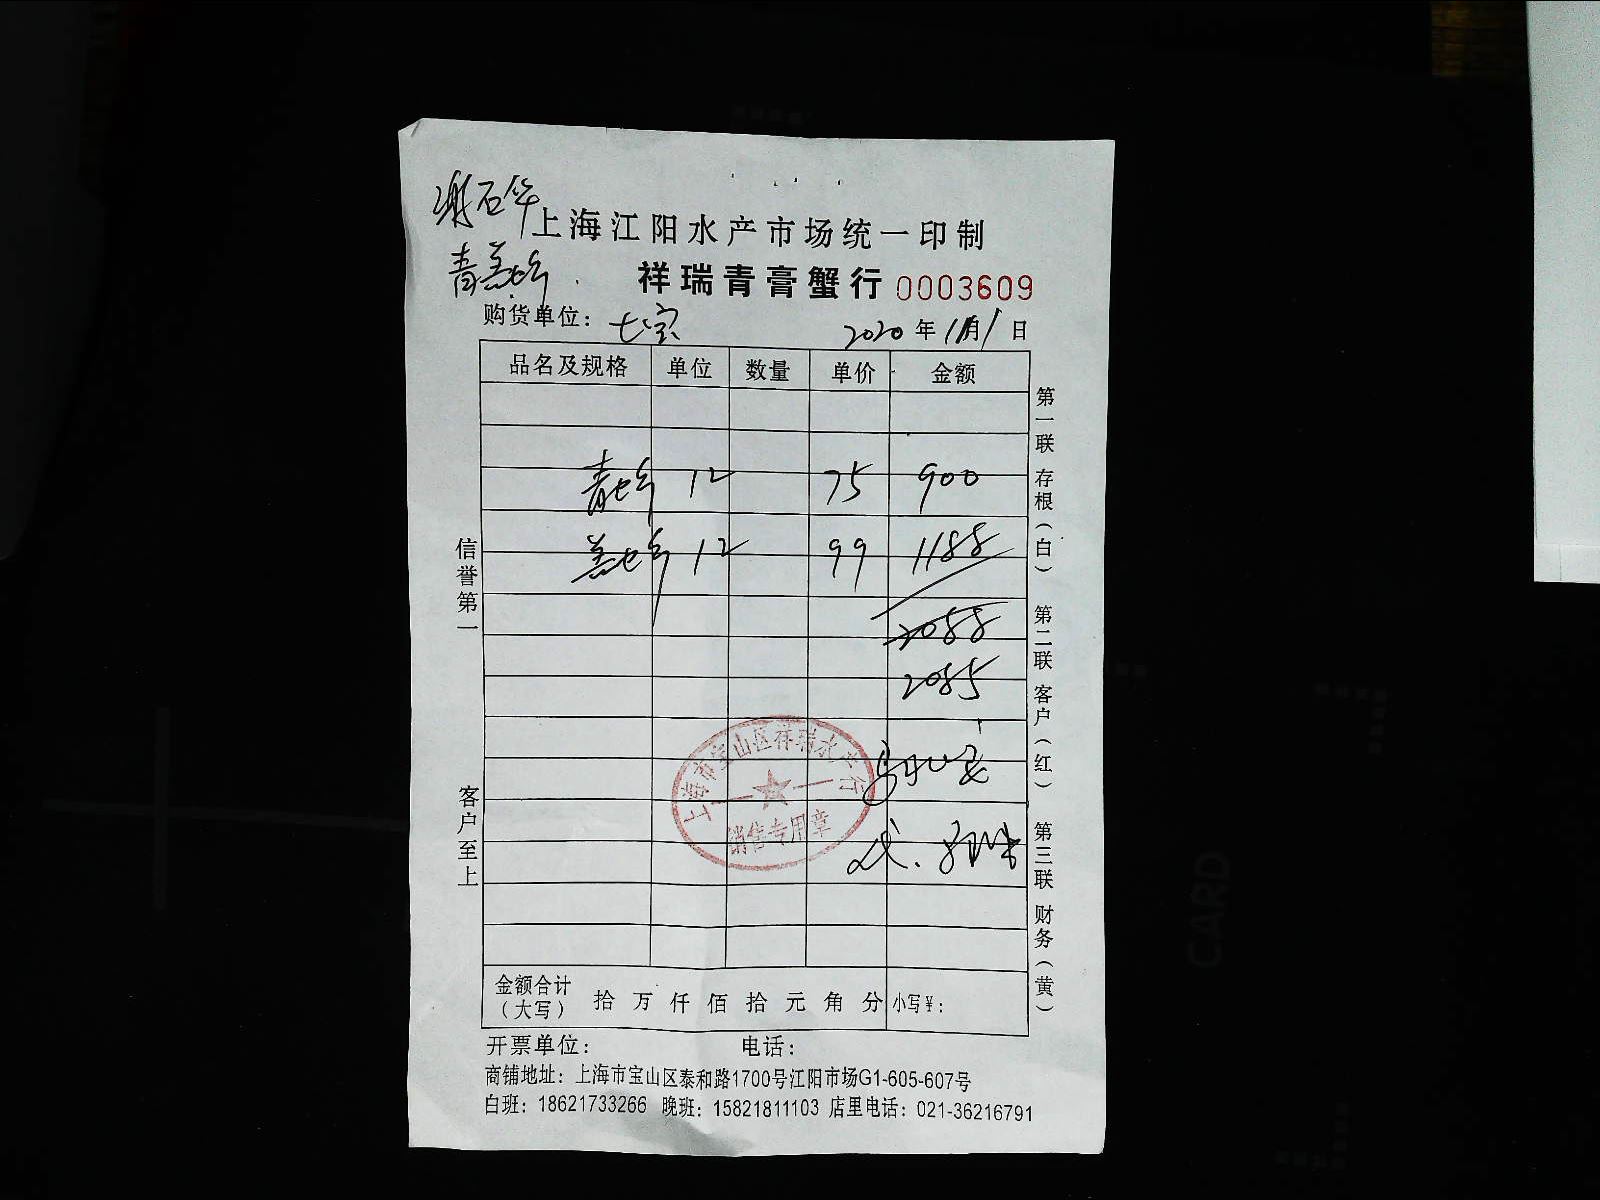 谢石华
上海江阳水产市场统一印制
祥瑞青膏蟹行 0003609
购货单位: 七宝 2020 年 11 月 1 日
品名及规格 单位 数量 单价 金额
12 75 900
12 99 1188
2088
2085
上海市宝山区祥瑞水产行
销售专用章
金额合计
(大写) 拾 万 仟 佰 拾 元 角 分 小写¥:
开票单位: 电话:
商铺地址: 上海市宝山区泰和路1700号江阳市场G1-605-607号
白班: 18621733266 晚班: 15821811103 店里电话: 021-36216791
信誉第一
客户至上
第一联 存根(白)
第二联 客户(红)
第三联 财务(黄)
CARD